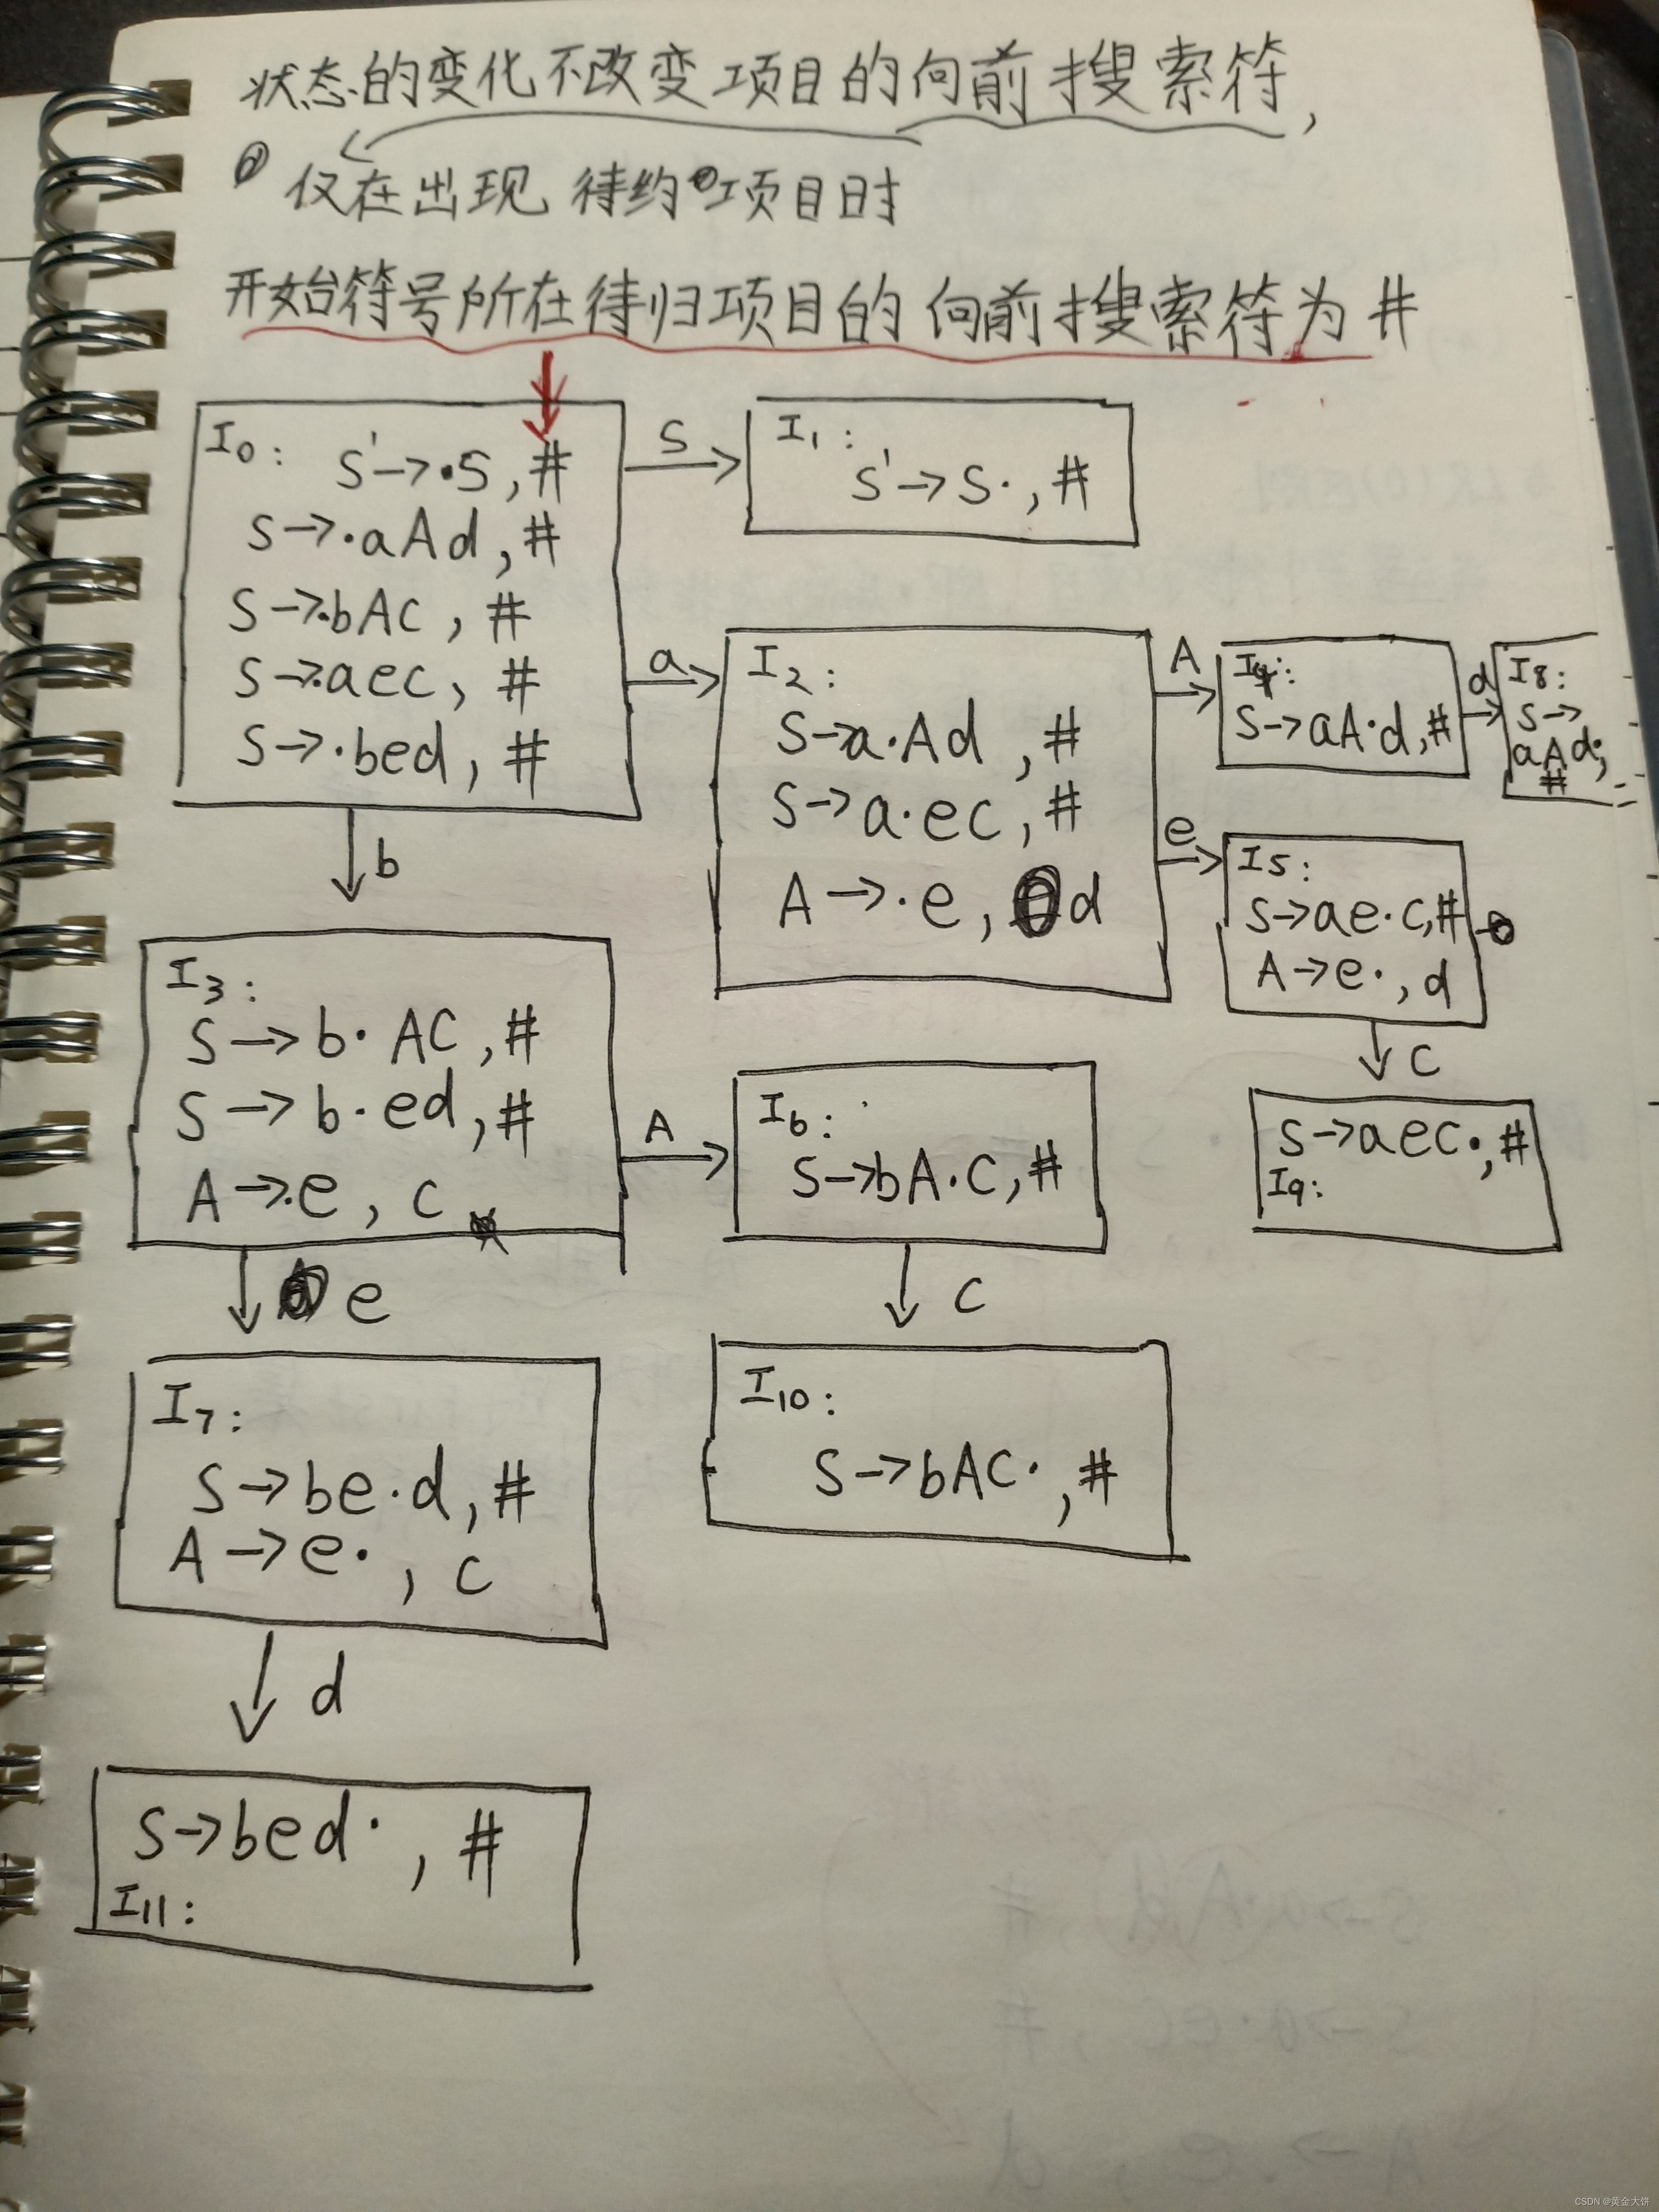 状态的变化不改变项目的向前搜索符,
仅在出现待约项目时
开始符号所在待归项目的向前搜索符为#
I0:
S'→·S,#
S→·aAd,#
S→·bAc,#
S→·aec,#
S→·bed,#
S
I1:
S'→S·,#
a
I2:
S→a·Ad,#
S→a·ec,#
A→·e,d
A
I4:
S→aA·d,#
d
I8:
S→
aAd·,
#
e
I5:
S→ae·c,#
A→e·,d
c
S→aec·,#
I9:
b
I3:
S→b·Ac,#
S→b·ed,#
A→·e,c
A
I6:
S→bA·c,#
c
I10:
S→bAc·,#
e
I7:
S→be·d,#
A→e·,c
d
S→bed·,#
I11:
CSDN @黄金大饼